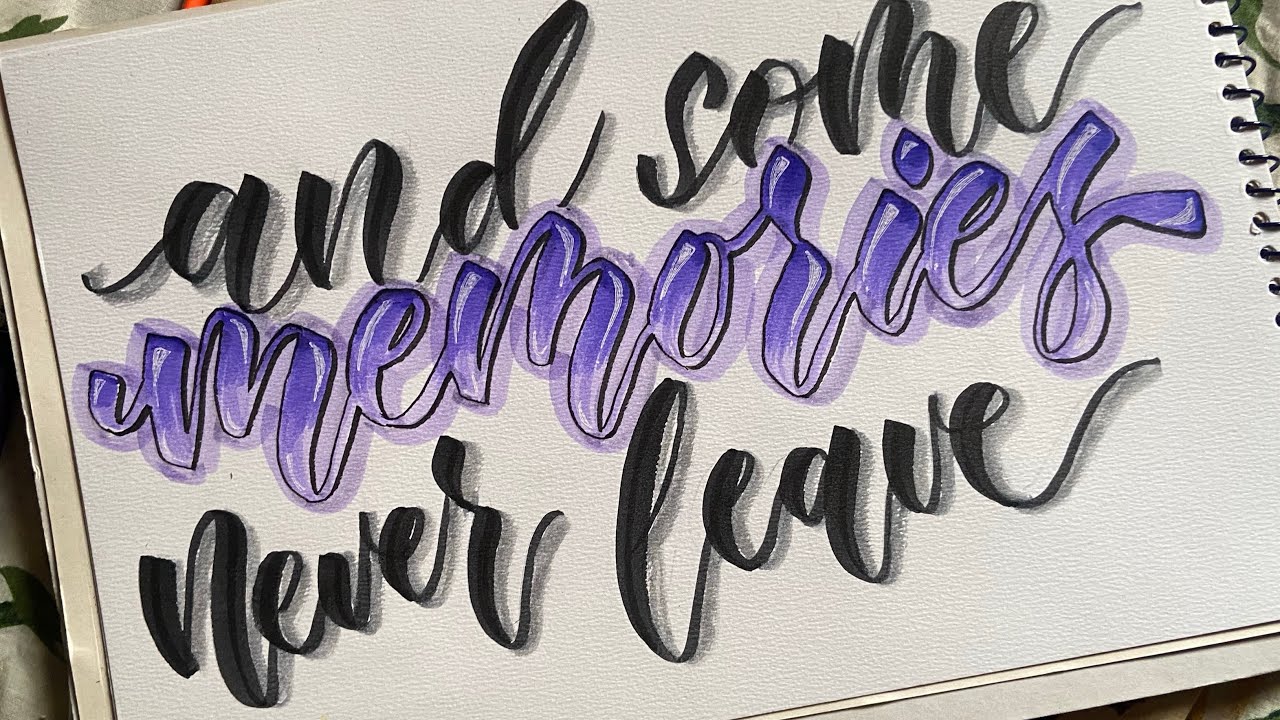 and some
memories
never leave